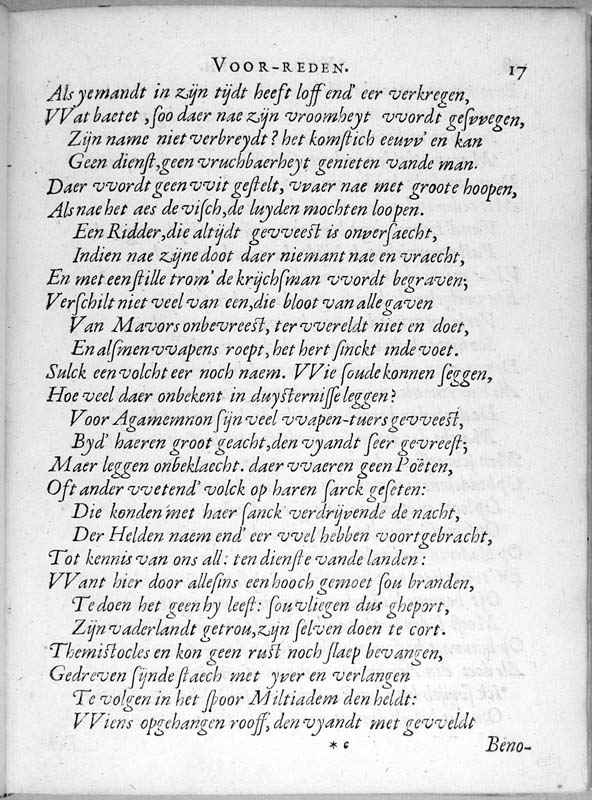 VOOR-REDEN. 17
Als yemandt in zijn tijdt heeft loff end' eer verkregen,
VVat baetet, soo daer nae zijn vroomheyt vvordt gesvvegen,
Zijn name niet verbreydt? het komstich eeuvv' en kan
Geen dienst, geen vruchbaerheyt genieten vande man.
Daer vvordt geen vvit gestelt, vvaer nae met groote hoopen,
Als nae het aes de visch, de luyden mochten loopen.
Een Ridder, die altijdt gevveest is onversaecht,
Indien nae zijne doot daer niemant nae en vraecht,
En met een stille trom' de krijchsman vvordt begraven;
Verschilt niet veel van een, die bloot van alle gaven
Van Mavors onbevreest, ter vvereldt niet en doet,
En alsmen vvapens roept, het hert sinckt inde voet.
Sulck een volcht eer noch naem. VVie soude konnen seggen,
Hoe veel daer onbekent in duysternisse leggen?
Voor Agamemnon sijn veel vvapen-tuers gevveest,
Byd' haeren groot geacht, den vyandt seer gevreest;
Maer leggen onbeklaccht. daer vvaeren geen Poëten,
Oft ander vvetend' volck op haren sarck geseten:
Die konden met haer sanck verdrijvende de nacht,
Der Helden naem end' eer vvel hebben voortgebracht,
Tot kennis van ons all: ten dienste vande landen:
VVant hier door allesins een hooch gemoet sou branden,
Te doen het geen hy leest: sou vliegen dus gheport,
Zijn vaderlandt getrou, zijn selven doen te cort.
Themistocles en kon geen rust noch slaep bevangen,
Gedreven sijnde staech met yver en verlangen
Te volgen in het spoor Miltiadem den heldt:
VViens opgehangen rooff, den vyandt met gevveldt
* c Beno-